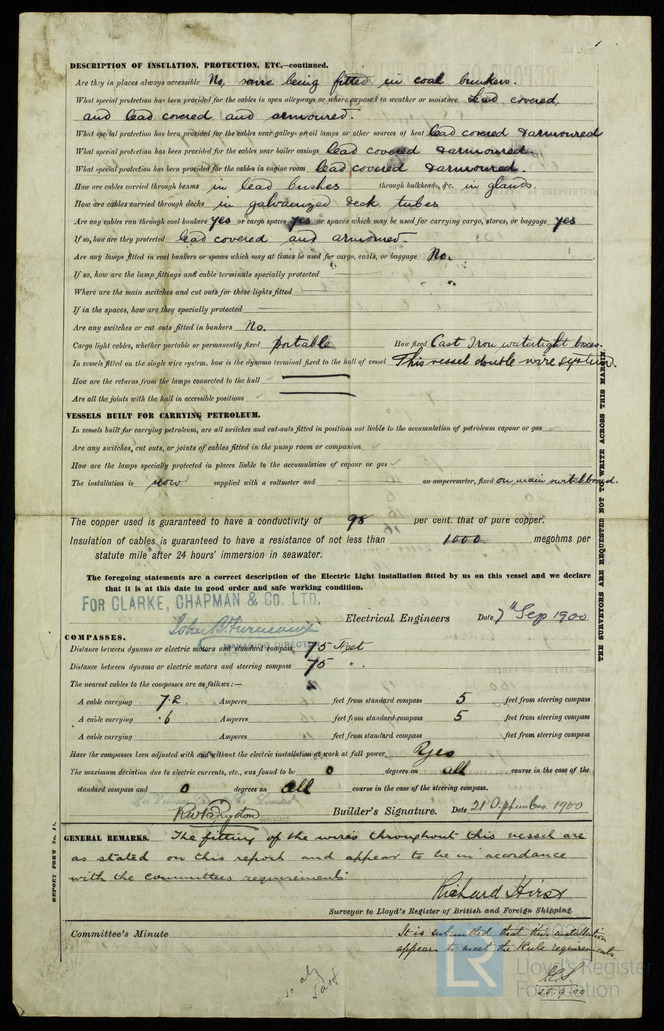 DESCRIPTION OF INSULATION, PROTECTION, ETC.—continued.
Are they in places always accessible No, some being fitted in coal bunkers.
What special protection has been provided for the cables in open alleyways or where exposed to weather or moisture Lead covered,
and lead covered and armoured.
What special protection has been provided for the cables near galleys or oil lamps or other sources of heat lead covered & armoured
What special protection has been provided for the cables near boiler casings lead covered & armoured.
What special protection has been provided for the cables in engine room lead covered & armoured.
How are cables carried through beams in lead bushes through bulkheads, &c. in glands.
How are cables carried through decks in galvanized deck tubes
Are any cables run through coal bunkers yes or cargo spaces yes or spaces which may be used for carrying cargo, stores, or baggage yes
If so, how are they protected lead covered and armoured.
Are any lamps fitted in coal bunkers or spaces which may at times be used for cargo, coals, or baggage No.
If so, how are the lamp fittings and cable terminals specially protected
Where are the main switches and cut outs for these lights fitted
If in the spaces, how are they specially protected
Are any switches or cut outs fitted in bunkers No.
Cargo light cables, whether portable or permanently fixed portable How fixed Cast Iron watertight boxes.
In vessels fitted on the single wire system, how is the dynamo terminal fixed to the hull of vessel This vessel double wire system.
How are the returns from the lamps connected to the hull
Are all the joints with the hull in accessible positions
VESSELS BUILT FOR CARRYING PETROLEUM.
In vessels built for carrying petroleum, are all switches and cut-outs fitted in positions not liable to the accumulation of petroleum vapour or gas
Are any switches, cut outs, or joints of cables fitted in the pump room or companion
How are the lamps specially protected in places liable to the accumulation of vapour or gas
The installation is now supplied with a voltmeter and an amperemeter, fixed on main switchboard.
The copper used is guaranteed to have a conductivity of 98 per cent. that of pure copper.
Insulation of cables is guaranteed to have a resistance of not less than 1000 megohms per
statute mile after 24 hours' immersion in seawater.
The foregoing statements are a correct description of the Electric Light installation fitted by us on this vessel and we declare
that it is at this date in good order and safe working condition.
FOR CLARKE, CHAPMAN & CO. LTD.
John B. Furneaux Electrical Engineers Date 7th Sep 1900
MANAGING DIRECTOR
COMPASSES.
Distance between dynamo or electric motors and standard compass 75 Feet
Distance between dynamo or electric motors and steering compass 75 "
The nearest cables to the compasses are as follows:—
A cable carrying 7.2 Amperes feet from standard compass 5 feet from steering compass
A cable carrying .6 Amperes feet from standard compass 5 feet from steering compass
A cable carrying Amperes feet from standard compass feet from steering compass
Have the compasses been adjusted with and without the electric installation at work at full power Yes
The maximum deviation due to electric currents, etc., was found to be 0 degrees on all course in the case of the
standard compass and 0 degrees on all course in the case of the steering compass.
Builder's Signature. Date 21 September 1900
GENERAL REMARKS. The fitting of the wires throughout this vessel are
as stated on this report and appear to be in accordance
with the committees requirements.
Richard Hirst
Surveyor to Lloyd's Register of British and Foreign Shipping.
Committee's Minute
It is submitted that this installation
appears to meet the Rule requirements
25.9.00
THE SURVEYORS ARE REQUESTED NOT TO WRITE ACROSS THIS MARGIN.
LR Lloyd's Register
Foundation